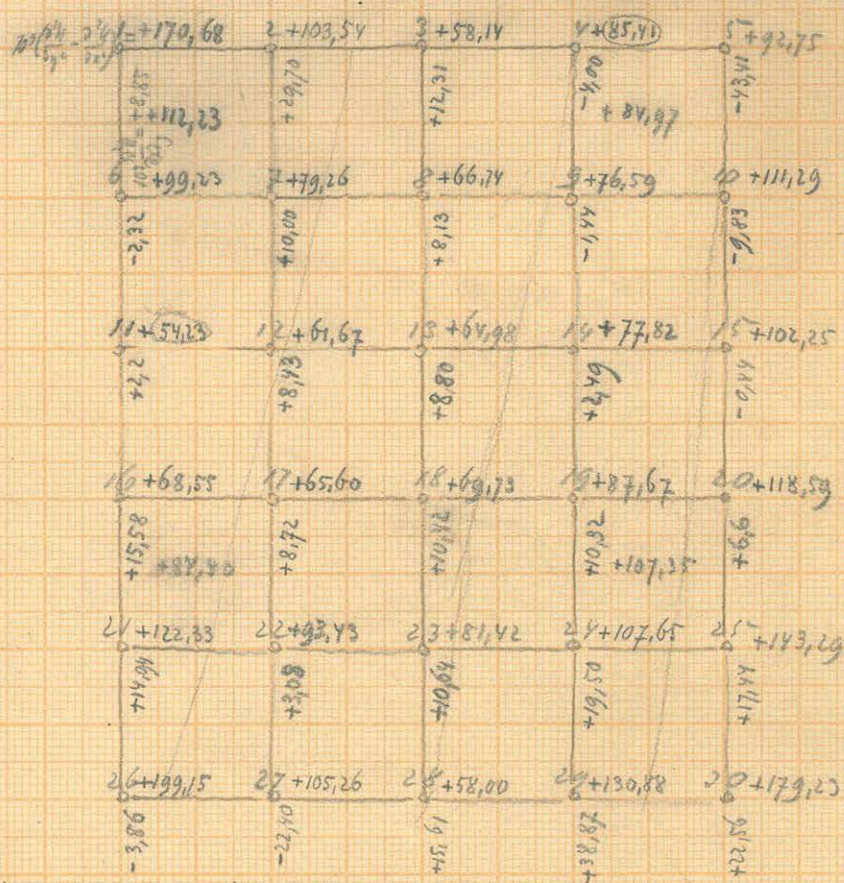 1 = +170,68 2 +103,54 3 +58,14 4 +85,41 5 +92,75
+8,85 +29,70 +12,31 -4,00 -43,41
+112,23 +84,97
6 +99,23 7 +79,26 8 +66,74 9 +76,59 10 +111,29
-2,32 +10,00 +8,13 -1,44 -9,83
11 +54,23 12 +61,67 13 +64,98 14 +77,82 15 +102,25
+2,2 +8,43 +8,80 +2,49 -0,44
16 +68,55 17 +65,60 18 +69,73 19 +87,67 20 +118,59
+15,58 +8,72 +10,42 +10,82 +6,6
+84,40 +107,35
21 +122,33 22 +93,43 23 +81,42 24 +107,65 25 +143,29
+14,94 +3,08 +10,64 +19,50 +17,44
26 +199,15 27 +105,26 28 +58,00 29 +130,88 30 +179,23
-3,86 -22,40 +15,61 +38,87 +22,95